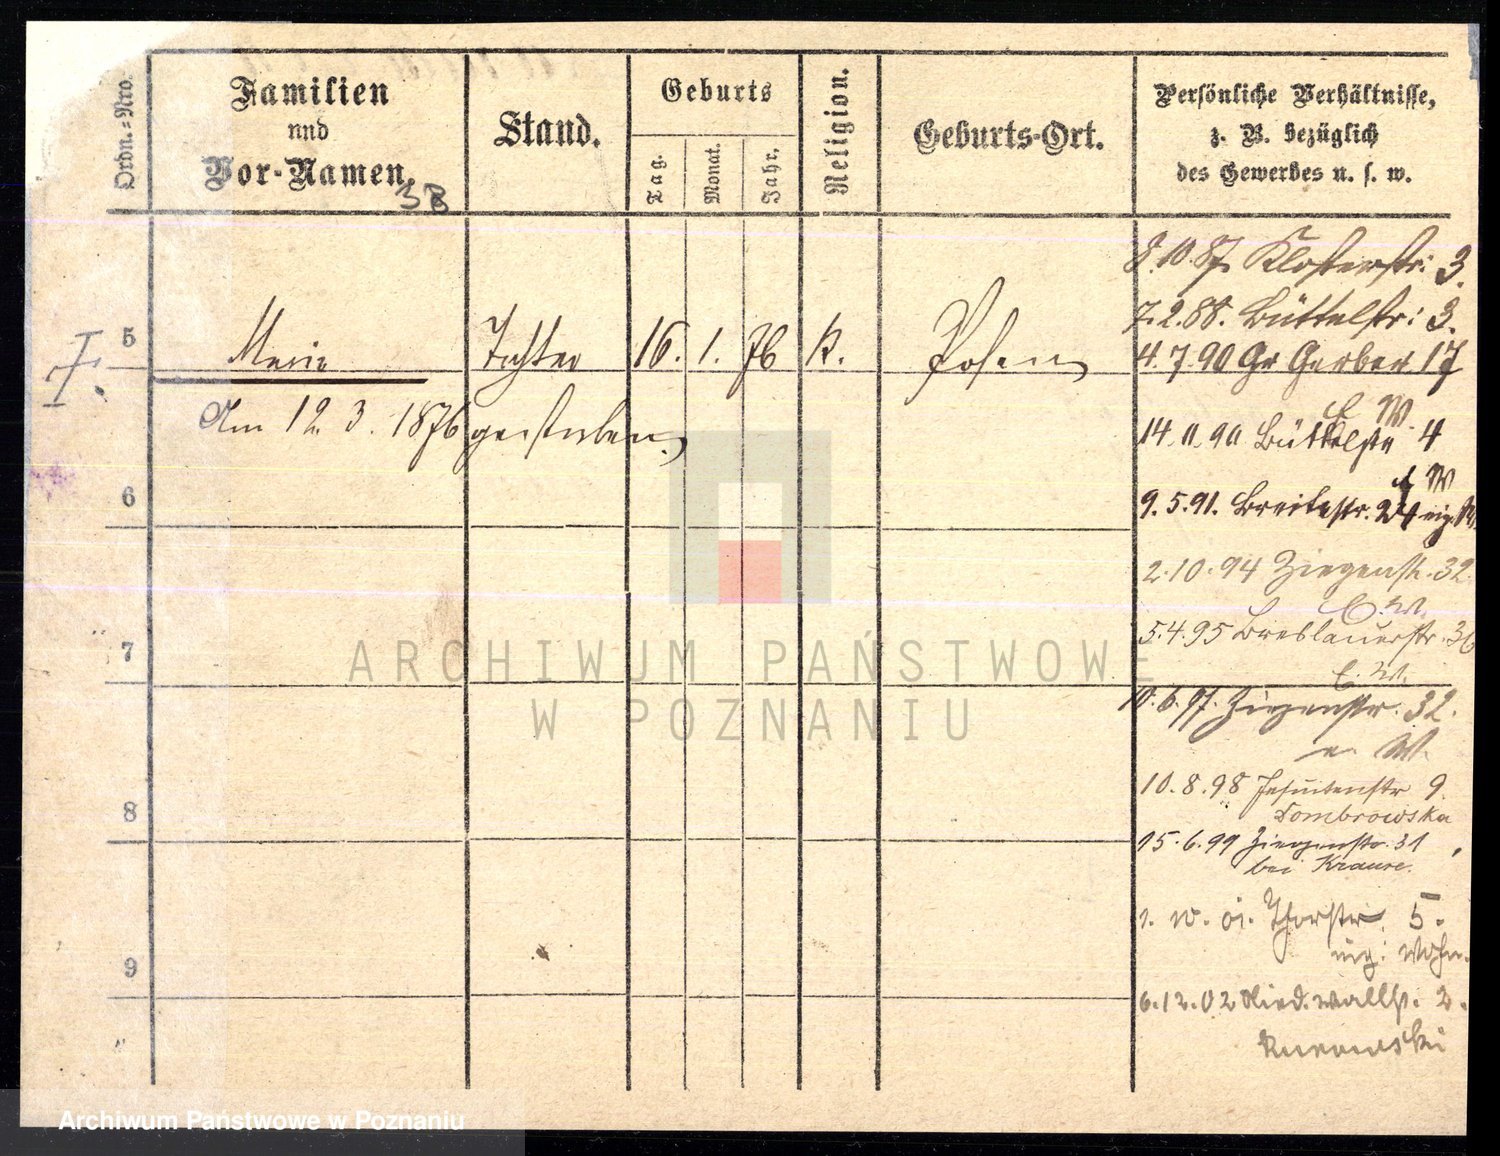 Ordn.=Nro.
Familien
und
Vor-Namen.
3B
Stand.
Geburts
Tag.
Monat.
Jahr.
Religion.
Geburts-Ort.
Persönliche Verhältnisse,
z. B. bezüglich
des Gewerbes u. s. w.
8.10.87. Klosterstr: 3.
7.2.88. Büttelstr: 3.
5 Maria Tochter 16. 1. 76 k. Posen
4.7.90 Gr Gerber 17
Am 12. 3. 1876 gestorben
14.11.90 Büttelstr 4
6
9.5.91. Breitestr. 24 eig. W
2.10.94 Ziegenstr. 32
5.4.95 Breslauerstr. 36
7
10.6.97. Ziegenstr. 32.
e. W.
10.8.98 Jesuitenstr 9
Dombrowska
8
15.6.99 Ziegenstr. 31
bei Krause.
1. 10. 01. Thorstr. 5.
eig: Wohn.
9
6.12.02 Nied. wallstr. 2.
ARCHIWUM PAŃSTWOWE
W POZNANIU
Archiwum Państwowe w Poznaniu